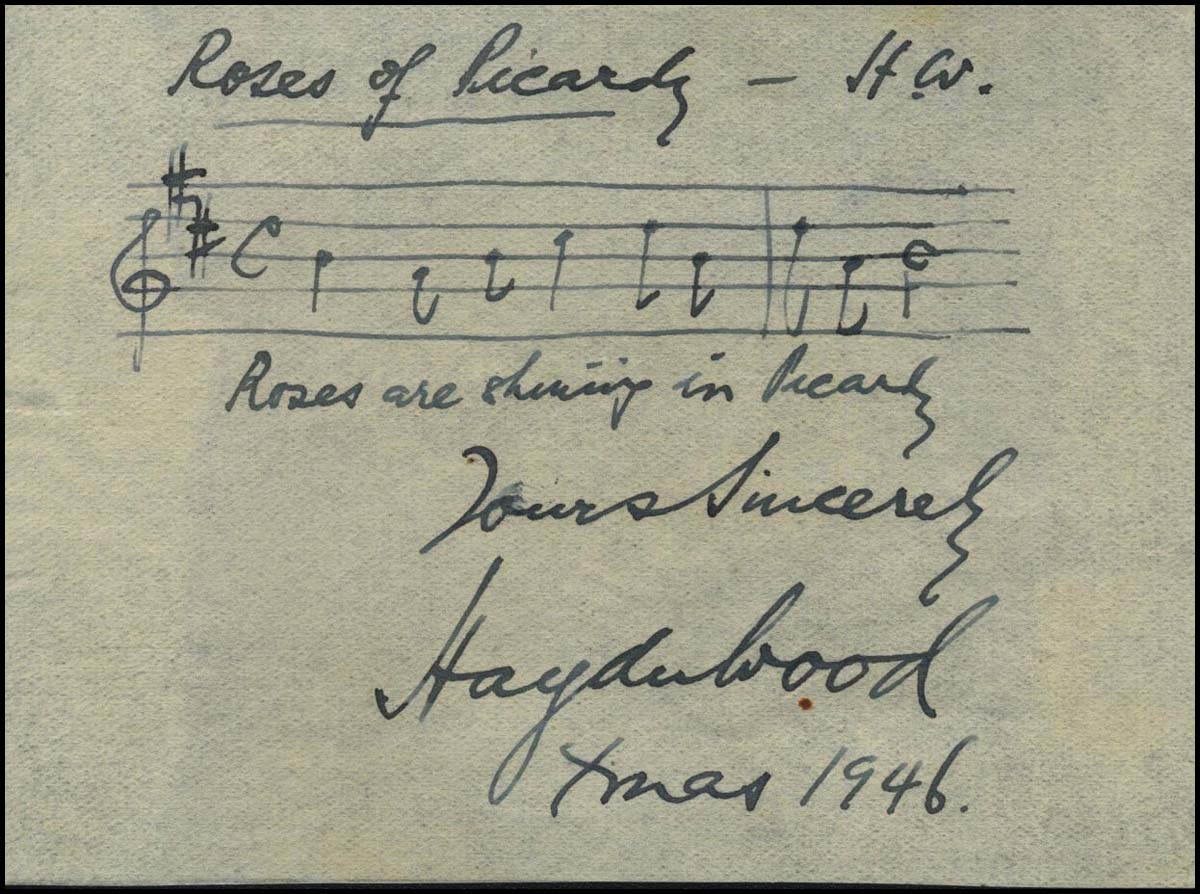 Roses of Picardy – H.W.
Roses are shining in Picardy
Yours Sincerely
Haydn Wood
Xmas 1946.